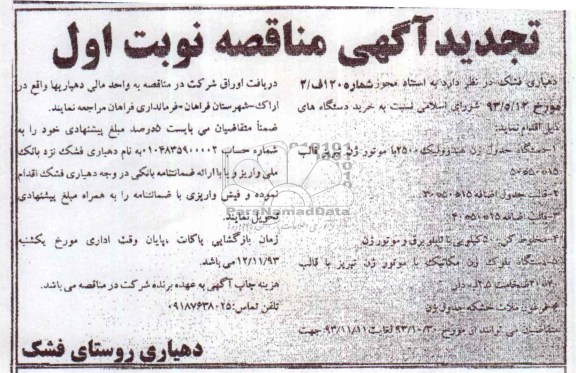 تجدید آگهی مناقصه نوبت اول
دهیاری فشک در نظر دارد به استناد مجوز شماره ۱۲۰ف/۲
مورخ ۹۳/۵/۱۳ شورای اسلامی نسبت به خرید دستگاه های
ذیل اقدام نماید:
۱-دستگاه جدول زن هیدرولیک ۲۵۰۰با موتور ژن تبریز قالب
۵۰*۵۰*۱۵
۲-قالب جدول اضافه ۱۵*۵۰*۳۰
۳-قالب اضافه ۱۵*۵۰*۴۰
۴-مخلوط کن ۵۰۰کیلویی با تابلو برق و موتور ژن
۵-دستگاه بلوک زن مکانیک با موتور ژن تبریز با قالب
۶-فرغون ملات خشکه جدول زن
متقاضیان می توانند از مورخ ۹۳/۱۰/۳۰ لغایت ۹۳/۱۱/۱۱ جهت
دریافت اوراق شرکت در مناقصه به واحد مالی دهیاریها واقع در
اراک-شهرستان فراهان-فرمانداری فراهان مراجعه نمایند.
ضمناً متقاضیان می بایست ۵درصد مبلغ پیشنهادی خود را به
شماره حساب ۰۱۰۴۸۳۵۹۰۰۰۰۲ به نام دهیاری فشک نزد بانک
ملی واریز و یا با ارائه ضمانتنامه بانکی در وجه دهیاری فشک اقدام
نموده و فیش واریزی با ضمانتنامه را به همراه مبلغ پیشنهادی
تحویل نمایند.
زمان بازگشایی پاکات ،پایان وقت اداری مورخ یکشنبه
۱۲/۱۱/۹۳ می باشد.
هزینه چاپ آگهی به عهده برنده شرکت در مناقصه می باشد.
تلفن تماس:۰۹۱۸۷۶۳۸۰۲۵
دهیاری روستای فشک
ParsNamadData